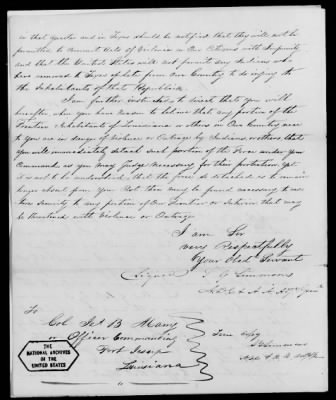 in that quarter and in Texas should be notified that they will not be
permitted to commit Acts of Violence on Our Citizens with impunity
and that the United States will not permit any Indians who
have removed to Texas of late from our Country to disquiet
the Inhabitants of that Republick.
I am further instructed to direct that you will
hereafter when you have reason to believe that any portion of the
Frontier Inhabitants of Louisiana or others in Our Country are
in danger of Violence or Outrage by Indians or others that
you will immediately detach such portion of the Force under your
Command as you may judge necessary for their protection yet
it is not to be understood that the force so detached is to remain
longer absent from you than may be found necessary to
security to any portion of our Frontier or Interior that may
be threatened with Violence or Outrage
I am Sir
very Respectfully
Your Obdt Servant
Signed
Simmons
To
Col Jas B Many
or Officer Commanding
Fort Jesup
Louisiana
True Copy
Simmons
THE
NATIONAL ARCHIVES
OF THE
UNITED STATES